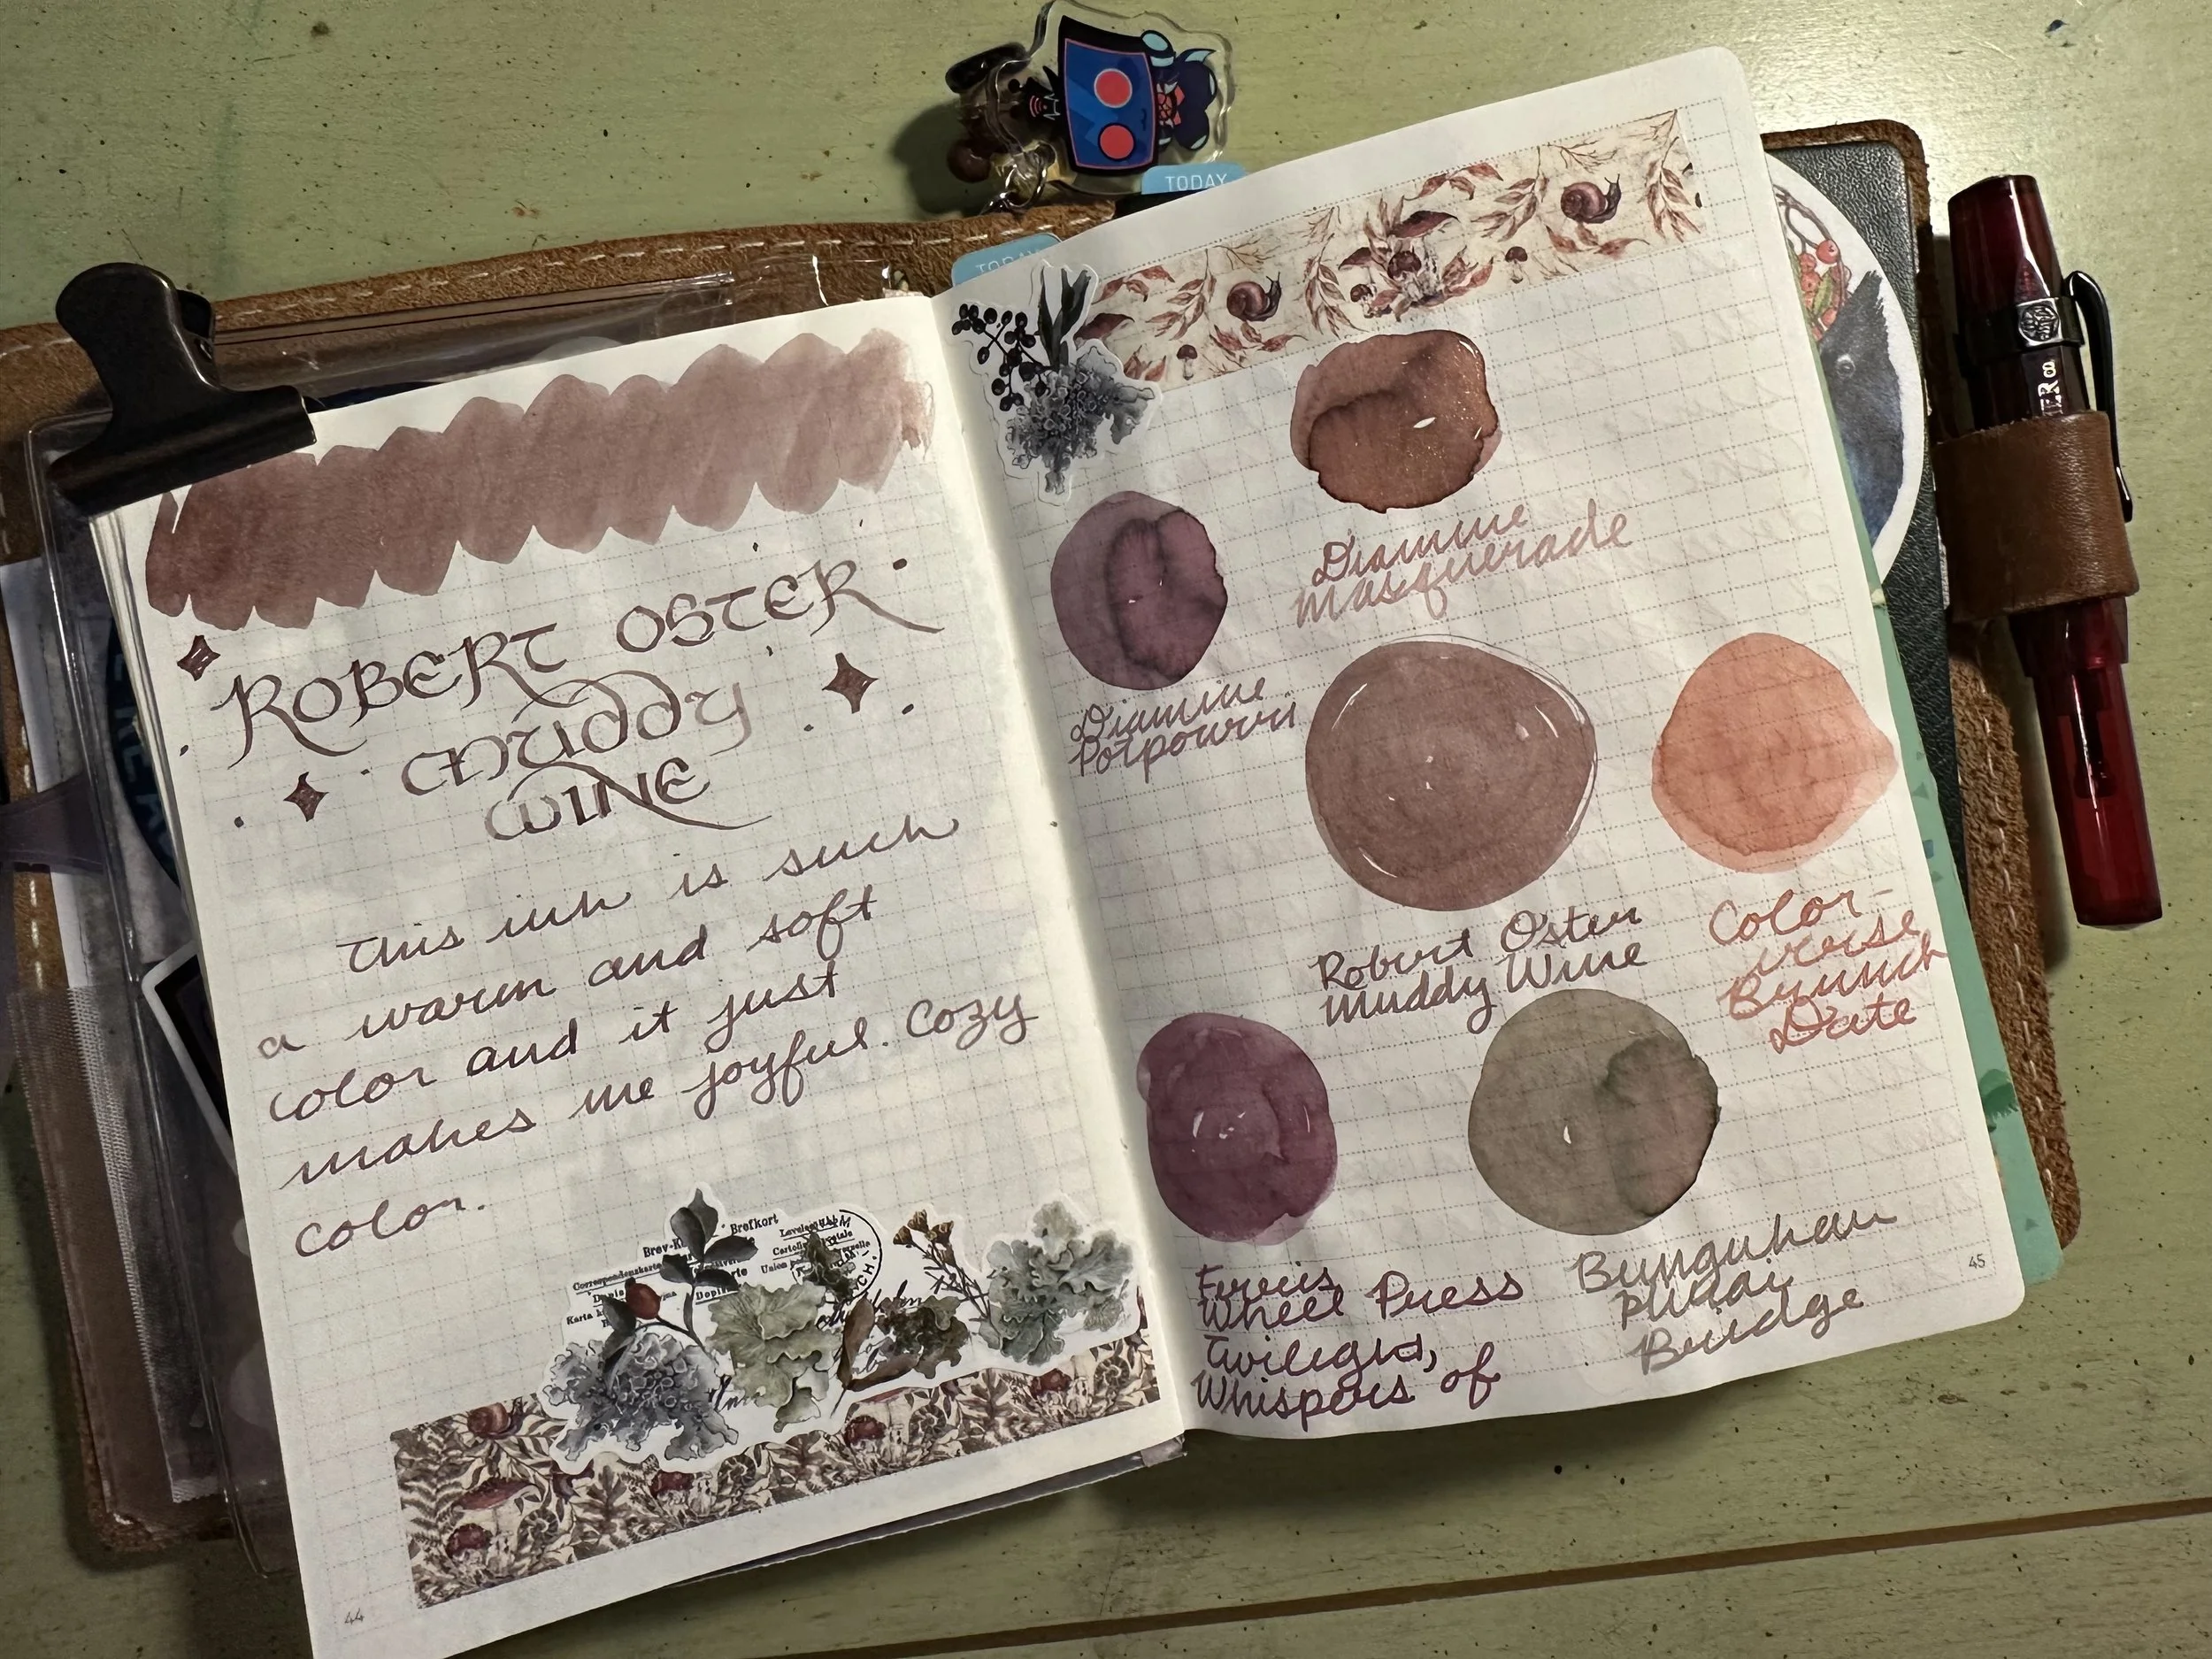 TODAY
TODAY
ROBERT OSTER
MUDDY
WINE
This ink is such
a warm and soft
color and it just
makes me joyful. Cozy
color.
Brefkort
Dopis
Karta
44
Diamine
Masquerade
Diamine
Potpourri
Robert Oster
Muddy Wine
Color-
verse
Brunch
Date
Ferris
Wheel Press
Twilight,
Whispers of
Bungubox
Bridge
45